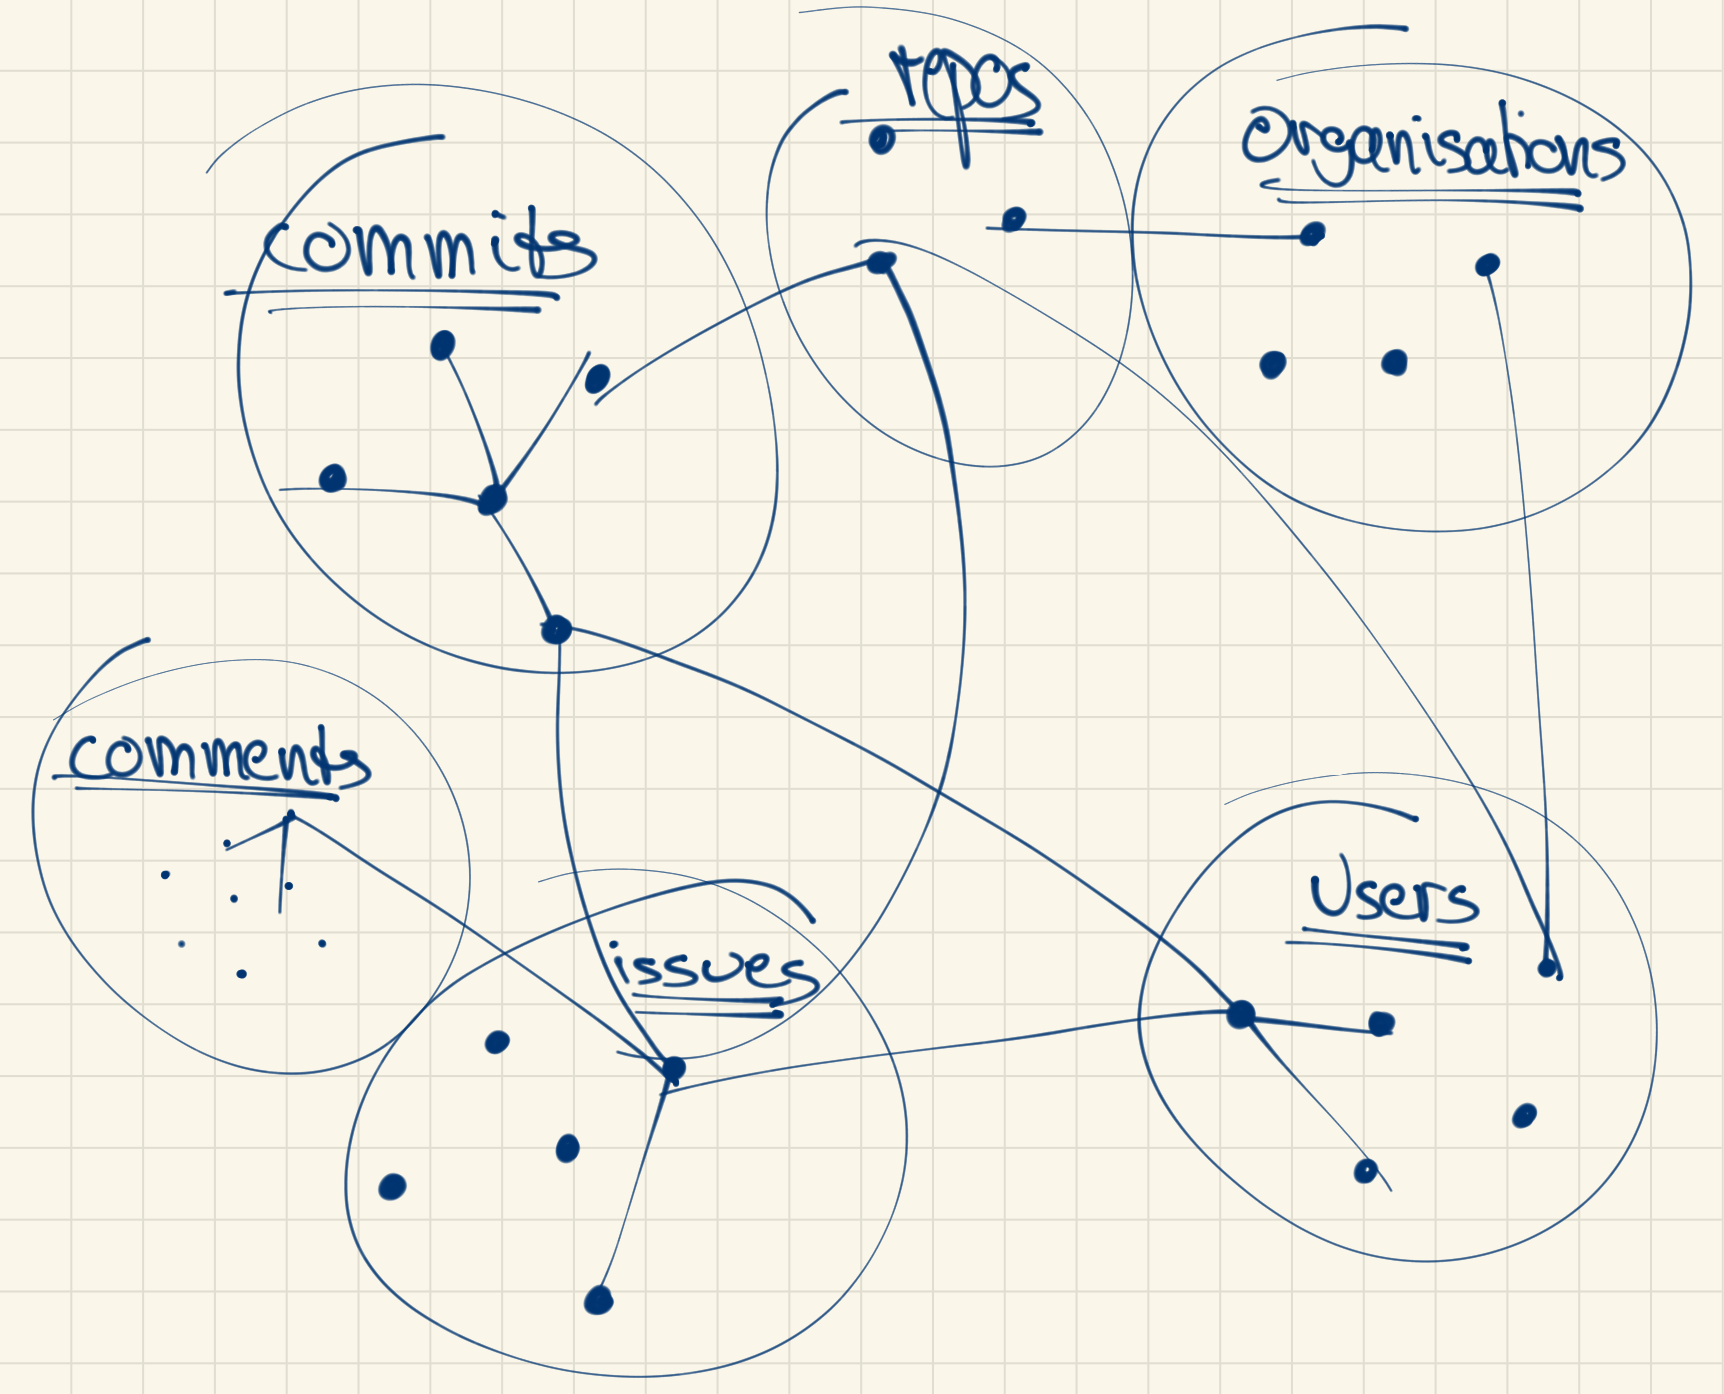 repos
Organisations
Commits
comments
Users
issues